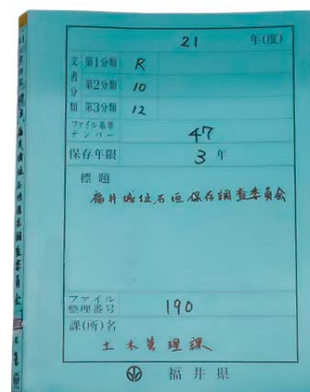 21 年(度)
文書分類 第1分類 R
第2分類 10
第3分類 12
ファイル基準ナンバー 47
保存年限 3 年
標題
福井城址石垣保存調査委員会
ファイル整理番号 190
課(所)名
土木管理課
福井県